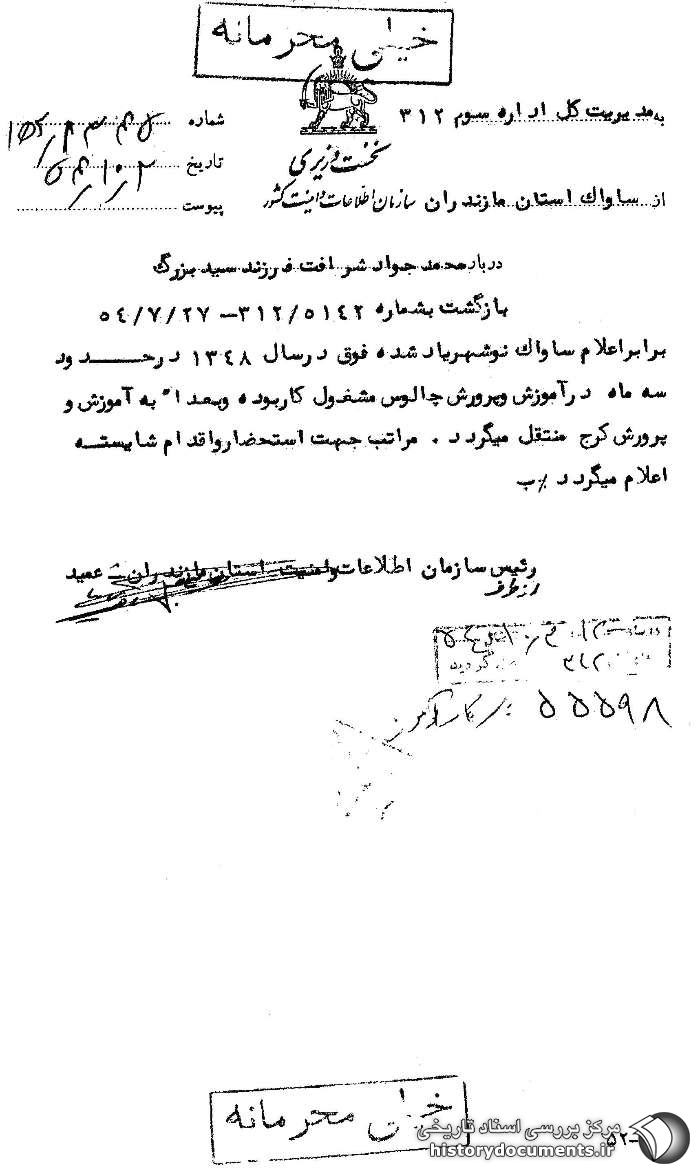 خیلی محرمانه
به مدیریت کل اداره سوم ۳۱۲
شماره
نخست وزیری
تاریخ ۵۴/۱۰/۲
از ساواک استان مازندران سازمان اطلاعات و امنیت کشور
پیوست
درباره محمد جواد شرافت فرزند سید بزرگ
بازگشت بشماره ۳۱۲/۵۱۴۲ – ۵٤/۷/۲۷
برابر اعلام ساواک نوشهر یاد شده فوق در سال ۱۳٤۸ در حدود
سه ماه در آموزش و پرورش چالوس مشغول کار بوده و بعدا" به آموزش و
پرورش کرج منتقل میگردد . مراتب جهت استحضار و اقدام شایسته
اعلام میگردد /ب
رئیس سازمان اطلاعات و امنیت استان مازندران – عمید
از طرف
۳۱۲
گردید
۵۵۵۹۸
خیلی محرمانه
مرکز بررسی اسناد تاریخی
historydocuments.ir